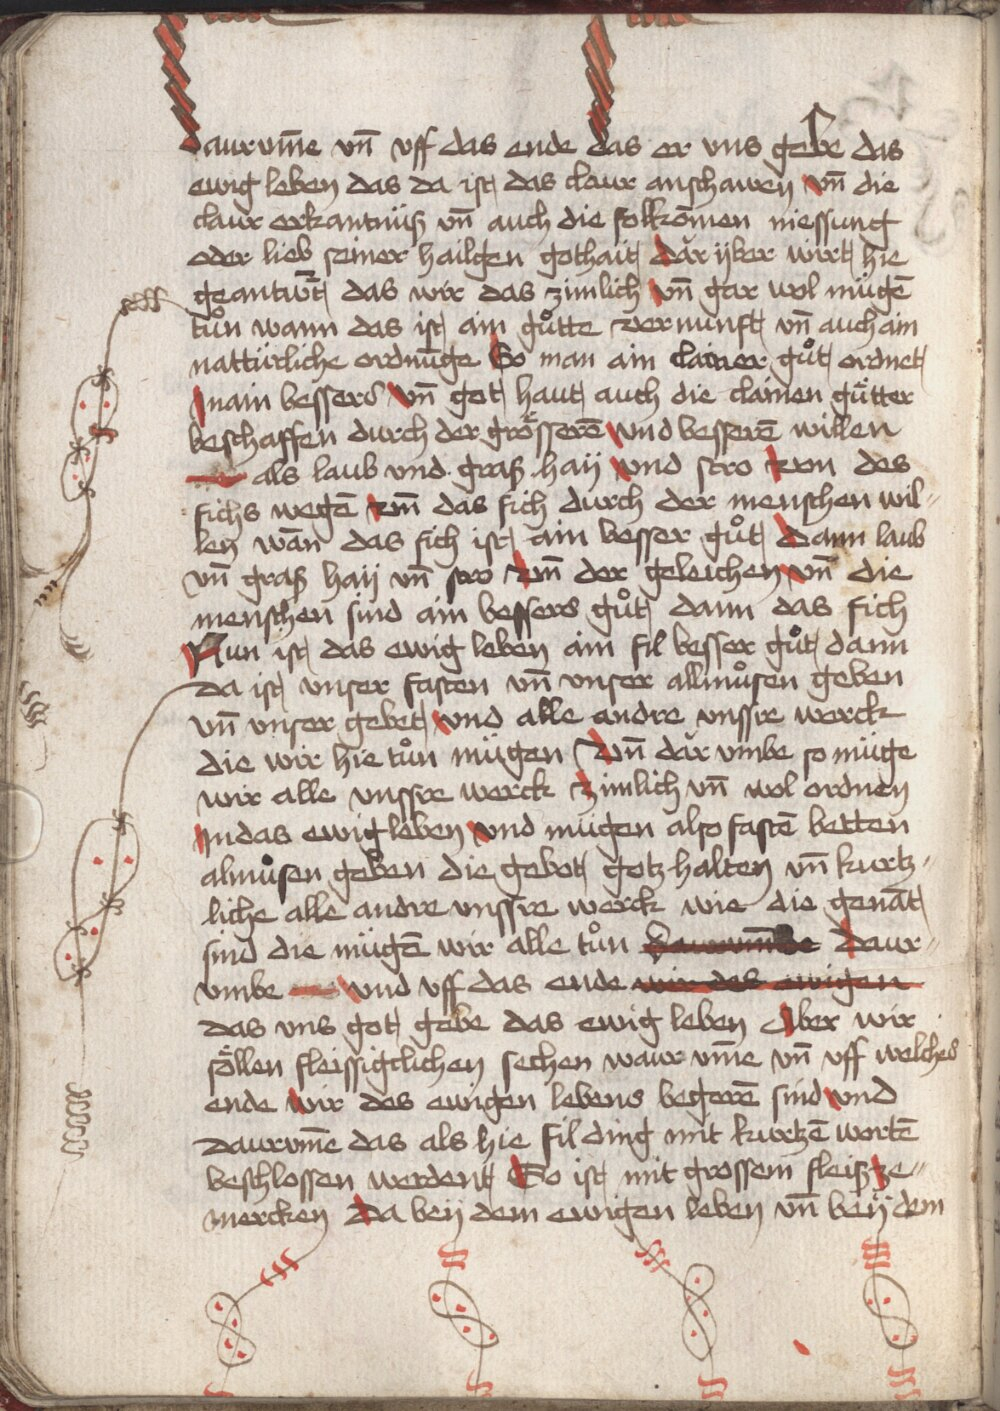 daurum̄e vn̄ vff das ende das er vns gebe das
ewig leben das da ist das claur anschawen vn̄ die
claur erkantnüß vn̄ auch die follkom̄en niessung
oder lieb seiner hailgen gothait dar ÿber wirt hie
geantwͦrt das wir das zimlich vn̄ gar wol mügē
tůn wann das ist ain gůtte vernunft vn̄ auch ain
nattürliche ordnūge So man ain clainer gůt ordnet
Jn ain bessers vn̄ got haut auch die clainen gůtter
beschaffen durch der grösserē vnd besserē willen
als laub vnd graß haÿ vnd stro von des
fichs wegē vn̄ das fich durch der menschen wil-
len wān das fich ist ain besser gůt dann laub
vn̄ graß haÿ vn̄ stro vn̄ der geleichen vn̄ die
menschen sind ain bessers gůt dann das fich
Nun ist das ewig leben ain fil besser gůt dann
da ist vnser fasten vn̄ vnser allmůsen geben
vn̄ vnser gebet vnd alle andre vnssre werck
die wir hie tůn mügen Vn̄ dar vmbe so müge
wir alle vnssre werck zimlich vn̄ wol ordnen
Jn das ewig leben vnd mügen also fastē betten
almůsen geben die gebot gotz halten vn̄ kurtz-
liche alle andre vnssre werck wie die genāt
sind die mügē wir alle tůn daur-
vmbe vnd vff das ende wir des ewigen
das vns got gebe das ewig leben Aber wir
söllen fleissigclichen sechen waur vm̄e vn̄ vff welches
ende wir des ewigen lebens begerē sind vnd
daurum̄e das als hie fil ding mit kurtzē wortē
beschlossen werdent So ist mit grossem fleiß ze-
mercken Da beÿ dem ewigen leben vn̄ beÿ dem